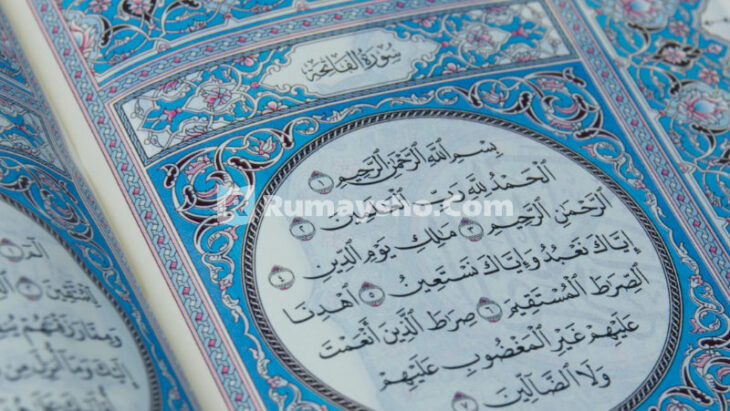 سُورَةُ الْفَاتِحَةِ
بِسْمِ اللَّهِ الرَّحْمَٰنِ الرَّحِيمِ ١
الْحَمْدُ لِلَّهِ رَبِّ الْعَالَمِينَ ٢
الرَّحْمَٰنِ الرَّحِيمِ ٣ مَالِكِ يَوْمِ الدِّينِ ٤
إِيَّاكَ نَعْبُدُ وَإِيَّاكَ نَسْتَعِينُ ٥ اهْدِنَا
الصِّرَاطَ الْمُسْتَقِيمَ ٦ صِرَاطَ الَّذِينَ أَنْعَمْتَ
عَلَيْهِمْ غَيْرِ الْمَغْضُوبِ عَلَيْهِمْ
وَلَا الضَّالِّينَ ٧
Rumaysho.Com